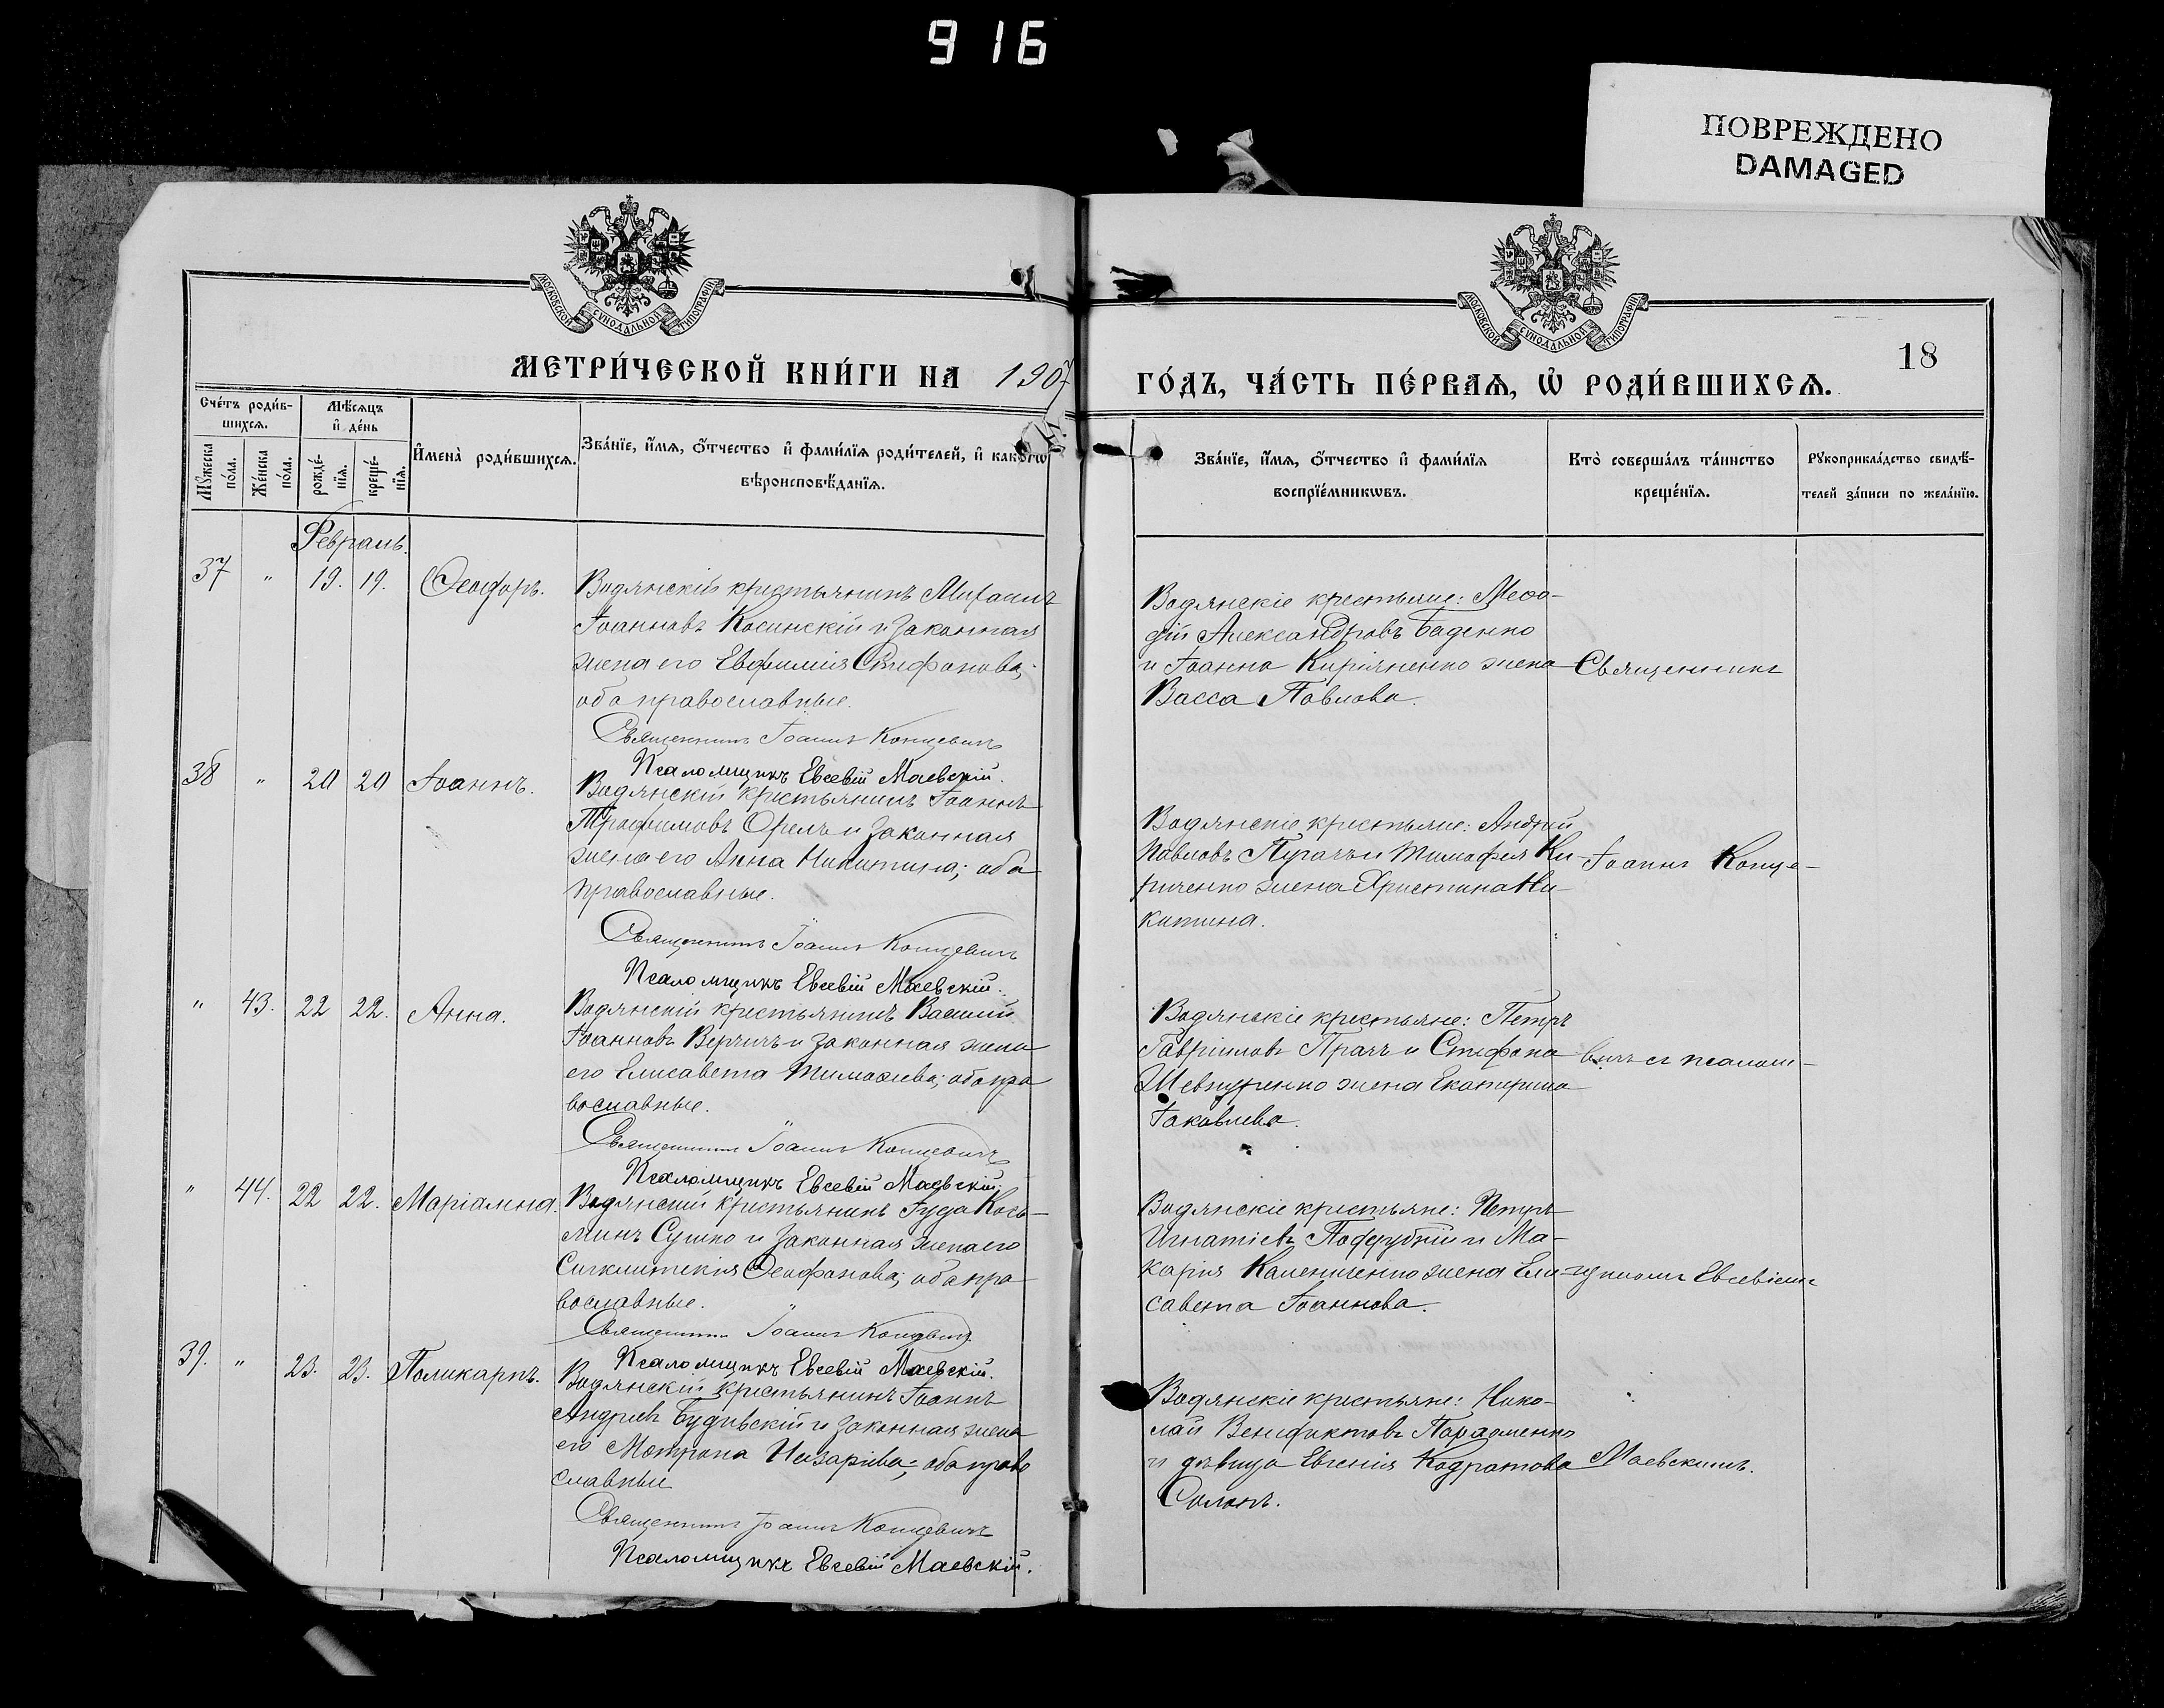 916
ПОВРЕЖДЕНО
DAMAGED
МОСКОВСКОЙ СУНОДАЛЬНОЙ ТИПОГРАФІИ
МОСКОВСКОЙ СУНОДАЛЬНОЙ ТИПОГРАФІИ
18
МЕТРИ́ЧЕСКОЙ КНИ́ГИ НА 1907
ГО́ДЪ, ЧА́СТЬ ПЕ́РВАѦ, Ѡ РОДИ́ВШИХСѦ.
Сче́тъ роди́в-
шихсѧ.
Мѣ́сѧцъ
и҆ де́нь
Мꙋ́жеска по́ла.
Же́нска по́ла.
рожде́-
нїѧ.
креще́-
нїѧ.
И҆мена̀ роди́вшихсѧ.
Зва́нїе, и҆́мѧ, ѻ҆́тчество и҆ фами́лїѧ роди́телей, и҆ како́гѡ
вѣроисповѣ́данїѧ.
Зва́нїе, и҆́мѧ, ѻ҆́тчество и҆ фами́лїѧ
воспрїе́мникѡвъ.
Кто̀ соверша́лъ та́инство
креще́нїѧ.
Рꙋкоприкла́дство свидѣ́-
телей за́писи по жела́нїю.
Февраль.
37 " 19. 19. Ѳеодоръ.
Водянскій крестьянинъ Михаилъ
Іоанновъ Косинскій и законная
жена его Евфимія Стефанова;
оба православные.
Священникъ Іоаннъ Концевичъ
Псаломщикъ Евсевій Маевскій.
Водянскіе крестьяне: Меѳо-
дій Александровъ Баденко
и Іоанна Киріяненко жена
Васса Павлова.
Священникъ
38 " 20 20 Іоаннъ.
Водянскій крестьянинъ Іоаннъ
Трофимовъ Орелъ и законная
жена его Анна Никитина; оба
православные.
Священникъ Іоаннъ Концевичъ
Псаломщикъ Евсевій Маевскій.
Водянскіе крестьяне: Андрей
Павловъ Пугачъ и Тимофея Ки-
риченко жена Христина Ни-
китина.
Іоаннъ Конце-
" 43. 22 22. Анна.
Водянскій крестьянинъ Василій
Іоанновъ Верчичъ и законная жена
его Елисавета Тимоѳеева; оба пра
вославные.
Священникъ Іоаннъ Концевичъ
Псаломщикъ Евсевій Маевскій.
Водянскіе крестьяне: Петръ
Гавріиловъ Прачъ и Стефана
Шевпуренко жена Екатерина
Іаковлева.
вичъ съ псалом-
" 44. 22 22. Маріамна.
Водянскій крестьянинъ Іуда Кось-
минъ Сушко и законная жена его
Сигклитикія Ѳеофанова; оба пра
вославные.
Священникъ Іоаннъ Концевичъ
Псаломщикъ Евсевій Маевскій.
Водянскіе крестьяне: Петръ
Игнатіевъ Поддубный и Ма-
карія Калениченко жена Ели-
савета Іоаннова.
щикомъ Евсевіемъ
39. " 23. 23. Поликарпъ.
Водянскій крестьянинъ Іоаннъ
Андреевъ Будивскій и законная жена
его Матрона Назаріева; оба право
славные
Священникъ Іоаннъ Концевичъ
Псаломщикъ Евсевій Маевскій.
Водянскіе крестьяне: Нико-
лай Венедиктовъ Пархоменко
и дѣвица Евгенія Кодратова
Солонъ.
Маевскимъ.